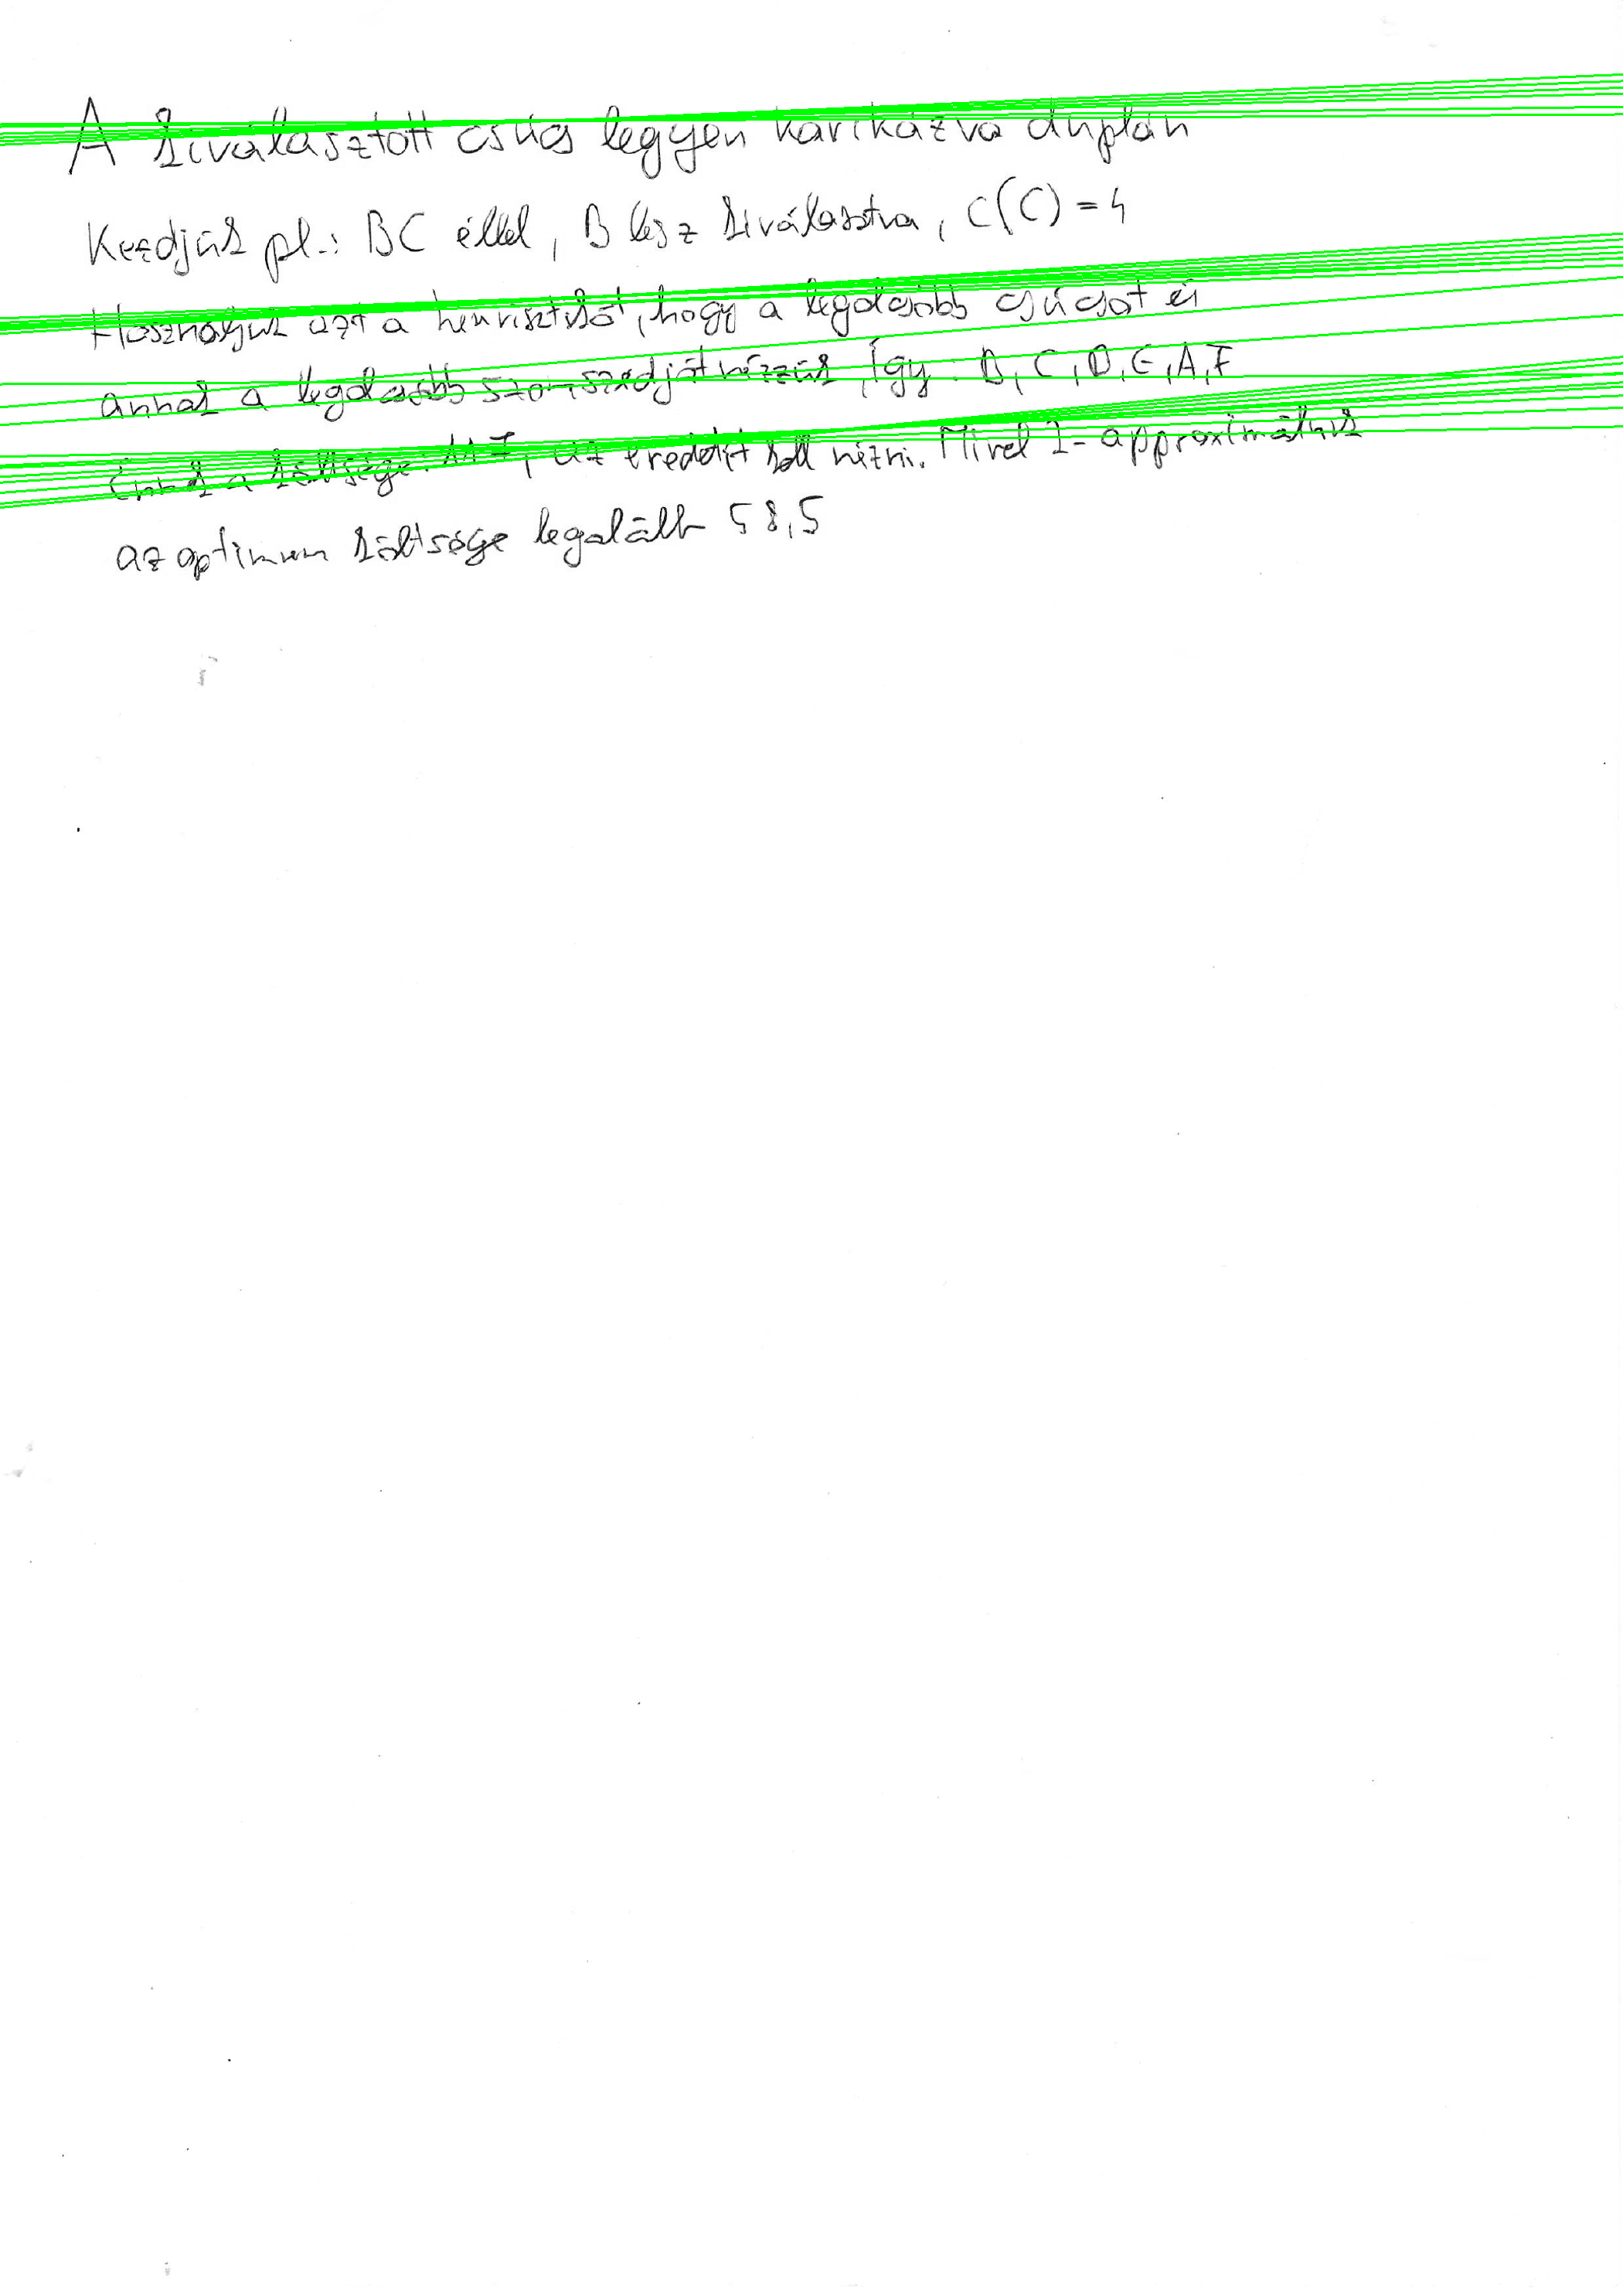 A kiválasztott csúcs legyen karikázva duplán
Kezdjük pl.: BC éllel, B lesz kiválasztva, C(C) = 4
Használjuk azt a heurisztikát, hogy a legolcsóbb csúcsot és
annak a legolcsóbb szomszédját nézzük, Így: B, C, D, E, A, F
Ennek a költsége: 117, az eredetit kell nézni. Mivel 2-approximációs
az optimum költsége legalább 58,5